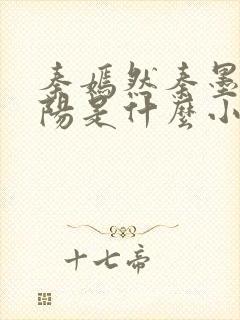 秦嫣然秦墨
陽是什麼小
十七帝